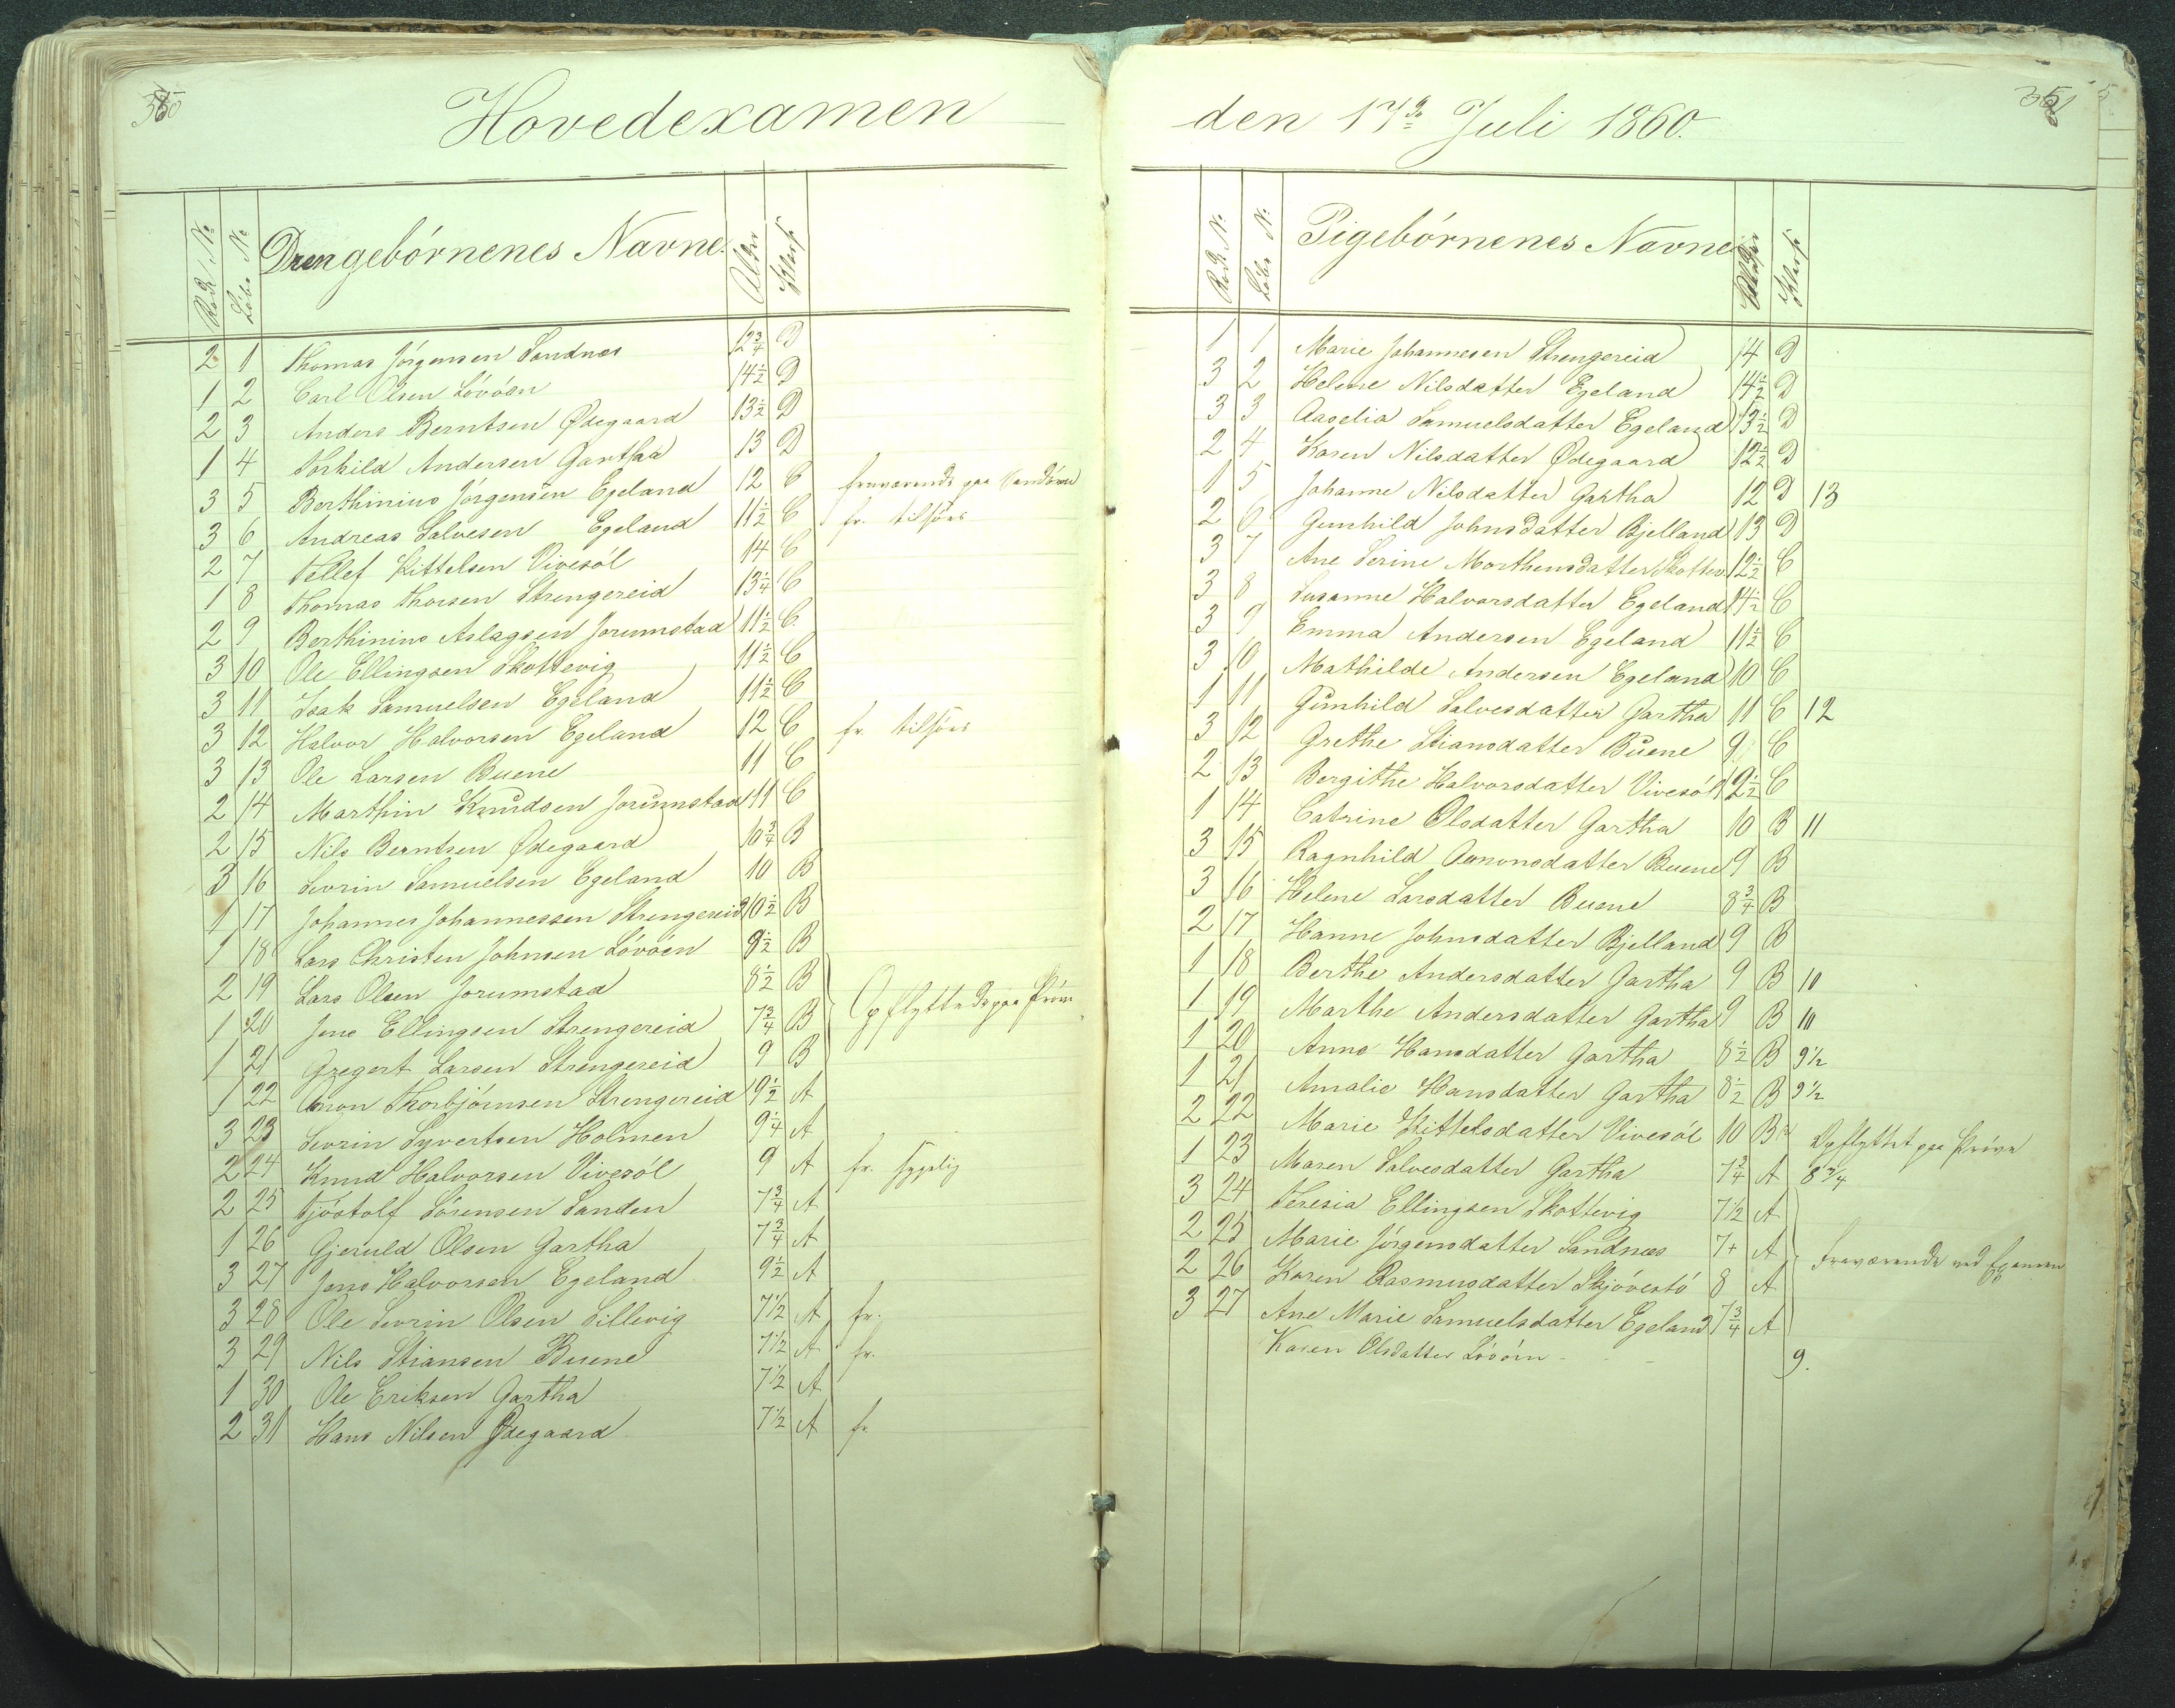 Hovedexamen
Rode No Løbe No Drengebórnenes Navne. Alder Klasse
2 1 Thomas Jórgensen Sandnæs 12 3/4 D
1 2 Carl Olsen Lóvóen 14 1/2 D
2 3 Anders Berntsen Ødegaard 13 1/2 D
1 4 Torkild Andersen Gartha 13 D
3 5 Berthinius Jórgensen Egeland 12 C fraværende paa
3 6 Andreas Salvesen Egeland 11 1/2 C fr. tilsøes
2 7 Tellef Kittelsen Vivesól 14 C
1 8 Thomas Thorsen Strengereid 13 1/4 C
2 9 Berthinius Aslagsen Jorumstad 11 1/2 C
3 10 Ole Ellingsen Skottevig 11 1/2 C
3 11 Isak Samuelsen Egeland 11 1/2 C
3 12 Halvor Halvorsen Egeland 12 C fr. tilsøes
3 13 Ole Larsen Buene 11 C
2 14 Marthin Knudsen Jorumstad 11 C
2 15 Nils Berntsen Ødegaard 10 3/4 B
3 16 Sevrin Samuelsen Egeland 10 B
1 17 Johannes Johannessen Strengereid 10 1/2 B
1 18 Lars Christen Johnsen Lóvóen 9 1/2 B
2 19 Lars Olsen Jorumstad 8 1/2 B
1 20 Jens Ellingsen Strengereid 7 3/4 B Opflyttede paa Prøve
1 21 Gregert Larsen Strengereid 9 B
1 22 Amon Thorbjórnsen Strengereid 9 1/2 A
3 23 Sevrin Syvertsen Holmen 9 1/4 A
2 24 Knud Halvorsen Vivesól 9 A fr. sygelig
2 25 Tjóstolf Sórensen Sanden 7 3/4 A
1 26 Gjeruld Olsen Gartha 7 3/4 A
3 27 Jens Halvorsen Egeland 9 1/2 A
3 28 Ole Sevrin Olsen Lillevig 7 1/2 A fr.
3 29 Nils Stiansen Buene 7 1/2 A fr.
1 30 Ole Eriksen Gartha 7 1/2 A
2 31 Hans Nilsen Ødegaard 7 1/2 A fr
den 17de Juli 1860.
Rode No Løbe No Pigebórnenes Navne Alder Klasse
1 1 Marie Johannesen Strengereid 14 D
3 2 Helene Nilsdatter Egeland 14 1/2 D
3 3 Aaselia Samuelsdatter Egeland 13 1/2 D
2 4 Karen Nilsdatter Ødegaard 12 1/2 D
1 5 Johanne Nilsdatter Gartha 12 D 13
2 6 Gunhild Johnsdatter Bjelland 13 D
3 7 Ane Serine Morthensdatter Skottev. 12 1/2 C
3 8 Susanne Halvorsdatter Egeland 11 1/2 C
3 9 Emma Andersen Egeland 11 1/2 C
3 10 Mathilde Andersen Egeland 10 C
1 11 Gunhild Salvesdatter Gartha 11 C 12
3 12 Grethe Stiansdatter Buene 9 C
2 13 Bergithe Halvorsdatter Vivesól 12 1/2 C
1 14 Catrine Olsdatter Gartha 10 B 11
3 15 Ragnhild Amonsdatter Buene 9 B
3 16 Helene Larsdatter Buene 8 3/4 B
2 17 Hanne Johnsdatter Bjelland 9 B
1 18 Berthe Andersdatter Gartha 9 B 10
1 19 Marthe Andersdatter Gartha 9 B 10
1 20 Anne Hansdatter Gartha 8 1/2 B 9 1/2
1 21 Amalie Hansdatter Gartha 8 1/2 B 9 1/2
2 22 Marie Kittelsdatter Vivesól 10 B Opflyttet paa Prøve
1 23 Maren Salvesdatter Gartha 7 3/4 A 8 3/4
3 24 Teresia Ellingsen Skottevig 7 1/2 A
2 25 Marie Jórgensdatter Sandnæs 7+ A
2 26 Karen Rasmusdatter Skjóvestó 8 A fraværende ved Examen
3 27 Ane Marie Samuelsdatter Egeland 7 3/4 A
Karen Olsdatter Lóvóen - - - 9.